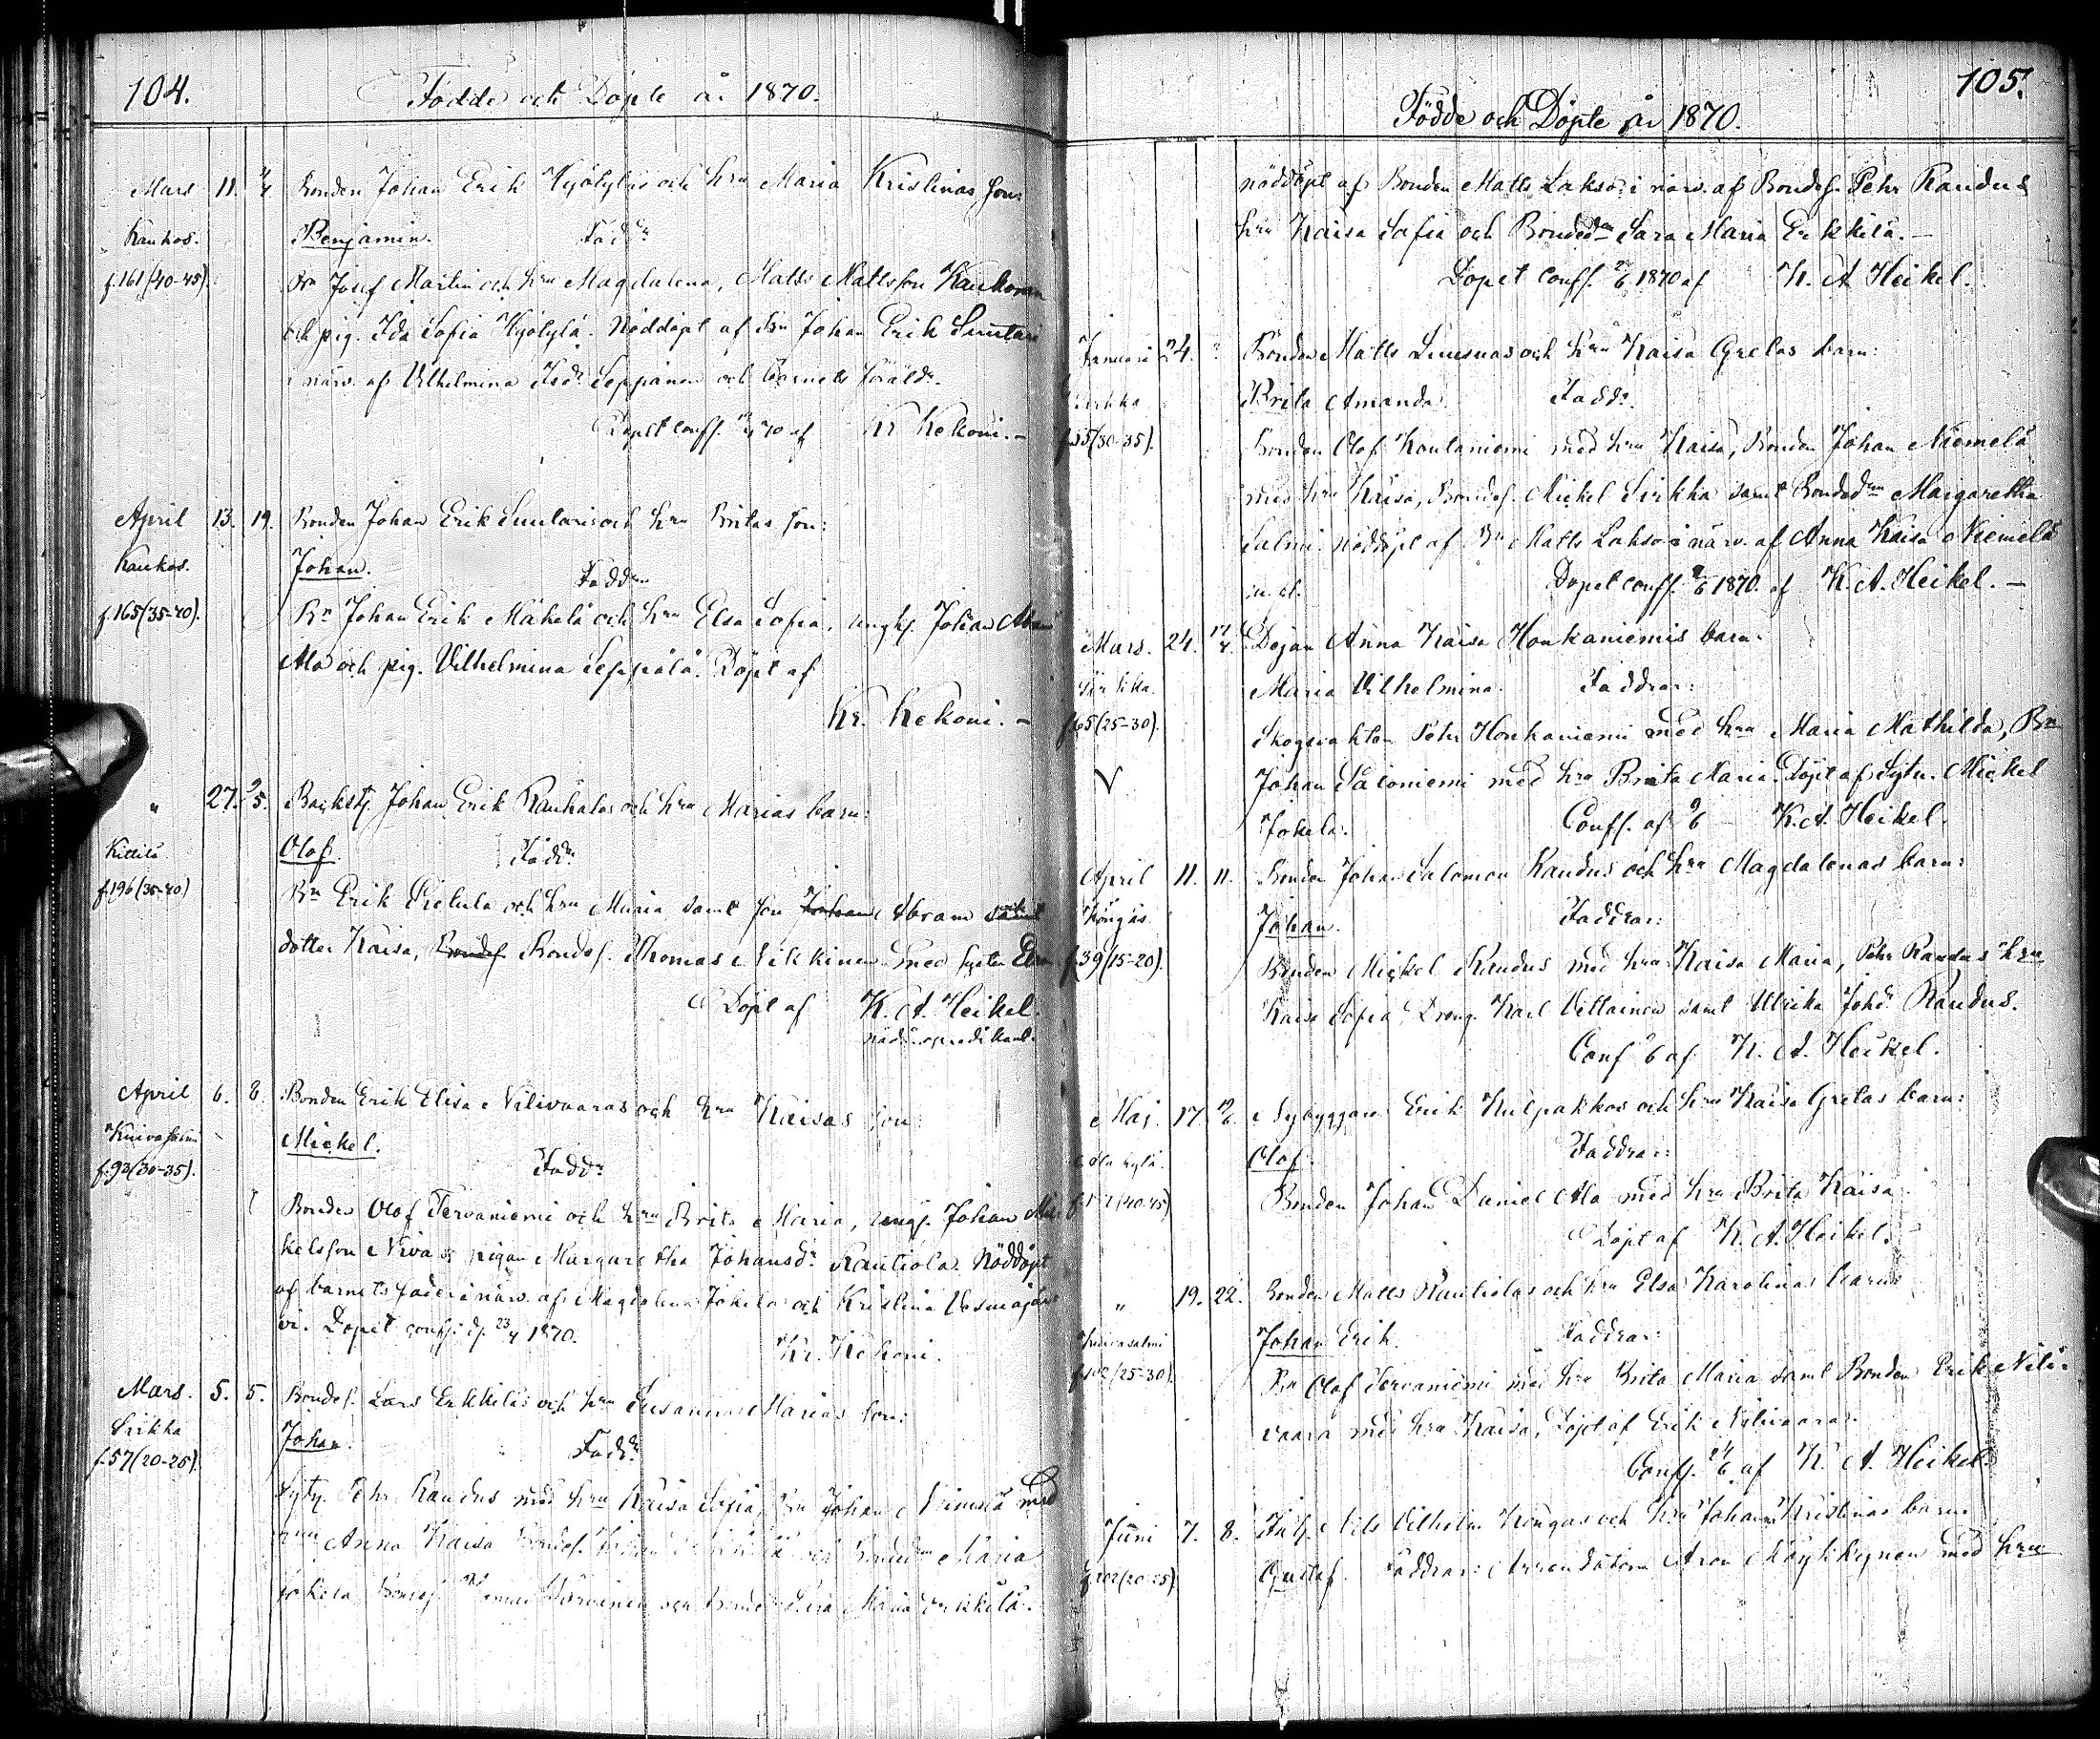 104.
Födde och Döpte år 1870.
Mars 11. Bonden Johan Erik Hyötyläs och hru Maria Kristinas son:
Kaukos. Benjamin. Faddr
f.161 (40-45). Bn Josef Martin och hru Magdalena, Matts Mattsson Kaukonen
och pig. Ida Sofia Hyötylä. Nöddöpt af Bn Johan Erik Suutari
i närv. af Vilhelmina Isdr Seppänen och barnets föräldr.
Dopet conf. 70 af Kr Kekoni.-
April 13. 19. Bonden Johan Erik Suutaris och hru Britas son:
Kaukos. Johan. Faddrar
f.165 (35-40). Bn Johan Erik Mäkelä och hru Elsa Sofia, ungk. Johan
Ala och pig. Vilhelmina Seppälä. Döpt af
Kr. Kekoni. -
" 27. 9/5. Backstj. Johan Erik Rauhalas och hru Marias barn:
Kittilä Olof. Faddr
f.196 (35-40) Bn Erik Pietula och hru Maria samt son Johan Abram samt och
dotter Kaisa, Bondes. Bondes. Thomas Nikkinen med syster
Döpt af K. A. Heikel.
nödårspredikant.
April 6. 8. Bonden Erik Elisa Nilivaaras och hru Kaisas son
Kuivasalmi Mickel. Faddr
f.93 (30-35). Bonden Olof Tervaniemi och hru Brita Maria, ungk. Johan Mic-
kelsson Niva o. pigan Margaretha Johansdr Rautiola. Nöddöpt
af barnets fader i närv. af Magdalena Jokela och Kristina Vesmajär-
vi. Dopet conf. d. 23/4 1870. Kr. Kekoni.
Mars. 5. 5. Bondes. Lars Erkkiläs och hru Susanna Marias son:
Sirkka Johan. Faddr
f.57 (20-25). Sytn. Pehr Raudus med hru Kaisa Sofia, Bn Johan Niemelä med
hru Anna Kaisa Bondes. Johan och Bondedn Maria
Jokela Bondes. och Sara Maria Erkkilä.
105.
Födde och Döpte år 1870.
nöddöpt af Bonden Matts Lakso i närv. af Bondes. Pehr Raudus
hru Kaisa Sofia och Bondedn Sara Maria Erkkilä. -
Dopet conf. 1870 af K. A Heikel.
Januari 24. ? Bonden Matts Luusuas och hru Kaisa Gretas barn:
Sirkka Brita Amanda. Faddr.
f.55 (30-35). Bonden Olof Koutaniemi med hru Kaisa, Bonden Johan Niemelä
med hru Kaisa, Bondes. Mickel Sirkka samt Bondedn Margaretha
Salmi. Nöddöpt af Bn Matts Lakso i närv. af Anna Kaisa Niemelä
m. fl. Dopet conf. 1870. af K. A. Heikel. -
Mars. 24. 17/4. Dejan Anna Kaisa Honkaniemis barn:
Sirkka. Maria Vilhelmina. Faddrar:
f.65 (25-30). Skogsvakten Pehr Honkaniemi med hru Maria Mathilda, Bn
V Johan Saloniemi med hru Brita Maria. Döpt af Sytn. Mickel
Jokela. Conf. af K. A. Heikel.
April 11. 11. Bonden Johan Salomon Raudus och hru Magdalenas barn:
Köngäs Johan. Faddrar:
f.39 (15-20). Bonden Mickel Raudus med hru Kaisa Maria, Pehr Raudus hru
Kaisa Sofia, Dreng. Karl Vettainen samt Ulrika Johdr Raudus.
Conf af K. A. Heikel.
Maj. 17. Nybyggaren Erik Kulpakkos och hru Kaisa Gretas barn:
Olof. Faddrar:
(40-45) Bonden Johan Daniel Ala med hru Brita Kaisa.
Döpt af K. A. Heikel.
" 19. 22. Bonden Matts Rautiolas och hru Elsa Karolinas barn
Kuivasalmi Johan Erik. Faddrar:
f.102 (25-30) Bn Olof Tervaniemi med hru Brita Maria samt Bonden Erik Nili-
vaara med hru Kaisa, Döpt af Erik Nilivaara.
Conf. af K. A. Heikel.
Juni 7. 8. Nils Vilhelm Kongas och hru Johanna Kristinas barn.
f.202 (20-25) Gustaf. Faddrar: Arrendatorn Aron Möykkynen med hru